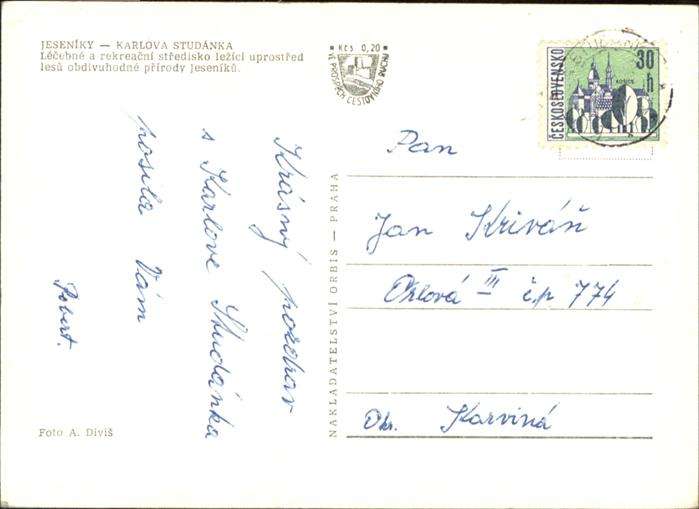 JESENÍKY — KARLOVA STUDÁNKA
Léčebné a rekreační středisko ležící uprostřed
lesů obdivuhodné přírody Jeseníků.
Kčs 0,20
VE PROSPĚCH CESTOVNÍHO RUCHU
ČESKOSLOVENSKO
30 h
KOŠICE
Krásný pozdrav
s Karlove Studánka
posila Vám
Robert.
Pan
Jan Kriváň
Orlová III č.p 774
Okr. Karviná
NAKLADATELSTVÍ ORBIS — PRAHA
Foto A. Diviš